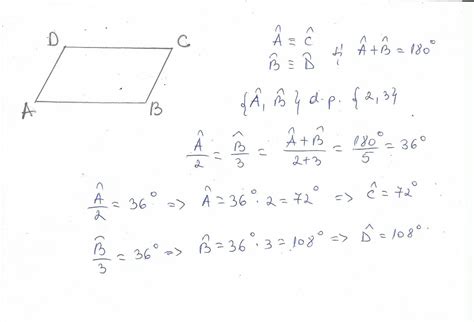 D C
A B
Â ≡ Ĉ
B̂ ≡ D̂ și Â + B̂ = 180°
{Â, B̂} d.p. {2,3}
Â/2 = B̂/3 = (Â+B̂)/(2+3) = 180°/5 = 36°
Â/2 = 36° => Â = 36°·2 = 72° => Ĉ = 72°
B̂/3 = 36° => B̂ = 36°·3 = 108° => D̂ = 108°